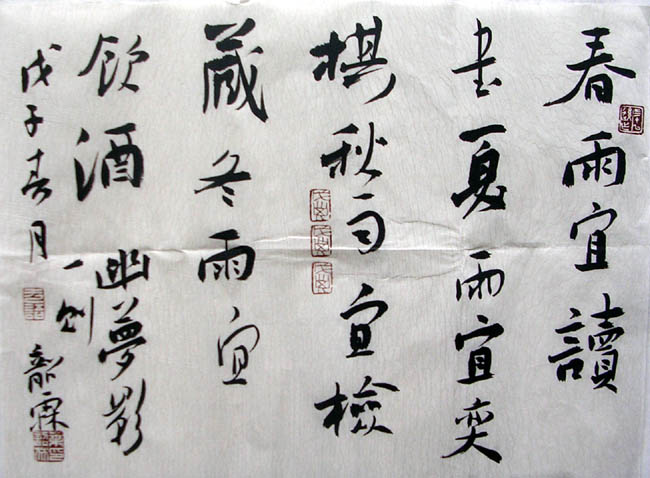 春雨宜讀
书夏雨宜奕
棋秋雨宜檢
藏冬雨宜
飲酒 幽夢影
一則
戊子春月
霖